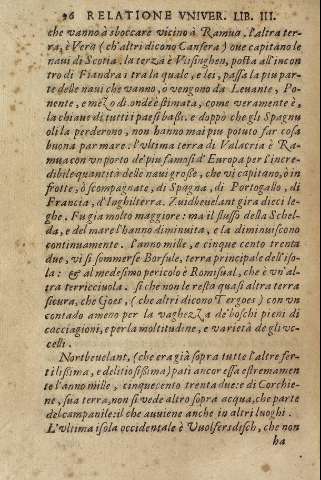 96 RELATIONE VNIVER. LIB. III.
che vanno à sboccare vicino à Ramua. l'altra ter-
ra, è Vera (ch'altri dicono Canfera) oue capitano le
naui di Scotia. la terza è Vlisinghen, posta all'incon
tro di Fiandra: tra la quale, e lei, passa la piu par-
te delle naui che vanno, o vengono da Leuante, Po-
nente, e mezo dì. ond'è estimata, come veramente è,
la chiaue di tutti i paesi bassi. e doppo che gli Spagnu
oli la perderono, non hanno mai piu potuto far cosa
buona par mare. l'vltima terra di Valacria è Ra-
mua con vn porto de' piu famosi d'Europa per l'incre-
dibile quantità delle naui grosse, che vi capitano, ò in
frotte, ò scompagnate, di Spagna, di Portogallo, di
Francia, d'Inghilterra. Zuidbeuelant gira dieci le-
ghe. Fu già molto maggiore: ma il flusso della Schel-
da, e del mare l'hanno diminuita, e la diminuiscono
continuamente. l'anno mille, e cinque cento trenta
due, vi si sommerse Borsule, terra principale dell'iso-
la: & al medesimo pericolo è Romisual, che è vn'al-
tra terricciuola. sì che non le resta quasi altra terra
sicura, che Goes, (che altri dicono Tergoes) con vn
contado ameno per la vaghezza de' boschi pieni di
cacciagioni, e per la moltitudine, e varietà de gli vc-
celli.
Nortbeuelant, (che era già sopra tutte l'altre fer-
tilissima, e delitiosissima) patì ancor essa estremamen
te l'anno mille, cinquecento trenta due: di Corchie-
ne, sua terra, non si vede altro sopra acqua, che parte
del campanile: il che auuiene anche in altri luoghi.
L'vltima isola occidentale è Vuolfersdisch, che non
ha